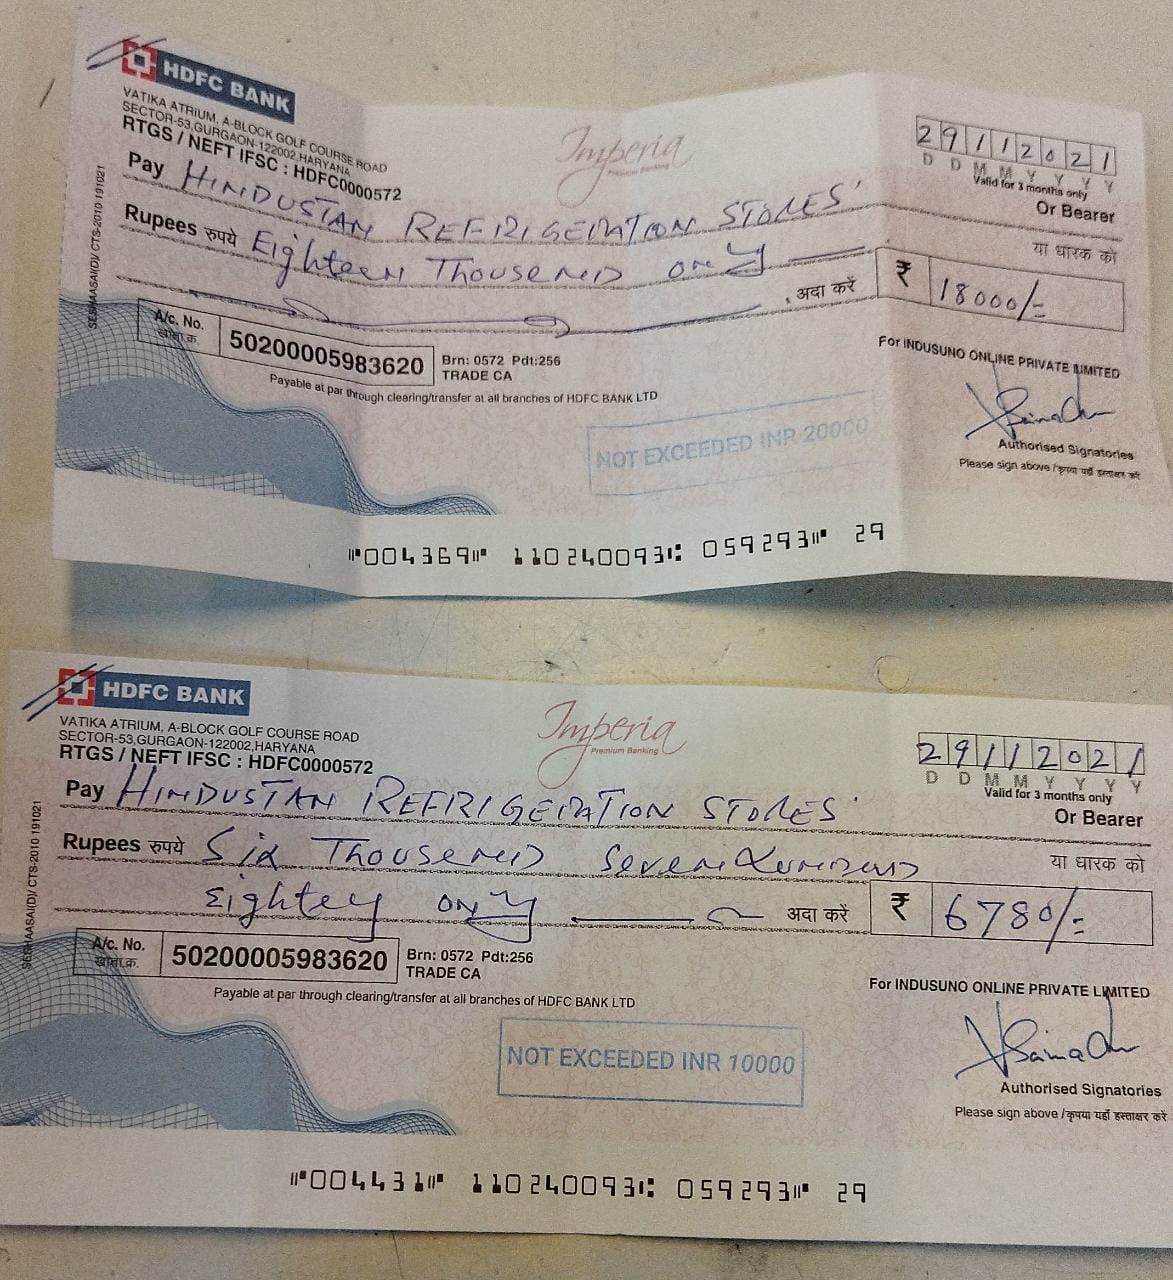 HDFC BANK
VATIKA ATRIUM, A-BLOCK GOLF COURSE ROAD
SECTOR-53,GURGAON-122002,HARYANA
RTGS / NEFT IFSC : HDFC0000572
Imperia
Premium Banking
29112021
D D M M Y Y Y Y
Valid for 3 months only
Pay HINDUSTAN REFRIGERATION STORES
Or Bearer
या धारक को
Rupees रुपये Eighteen Thousend only
अदा करें ₹ 18000/-
SESHAASAI(D)/ CTS-2010 191021
A/c. No.
खाता.क्र.
50200005983620
Brn: 0572 Pdt:256
TRADE CA
Payable at par through clearing/transfer at all branches of HDFC BANK LTD
For INDUSUNO ONLINE PRIVATE LIMITED
NOT EXCEEDED INR 20000
Authorised Signatories
Please sign above /कृपया यहाँ हस्ताक्षर करें
⑈004369⑈ 110240093⑆ 059293⑈ 29
HDFC BANK
VATIKA ATRIUM, A-BLOCK GOLF COURSE ROAD
SECTOR-53,GURGAON-122002,HARYANA
RTGS / NEFT IFSC : HDFC0000572
Imperia
Premium Banking
29112021
D D M M Y Y Y Y
Valid for 3 months only
Pay HINDUSTAN REFRIGERATION STORES
Or Bearer
Rupees रुपये Six Thousend Seven Hundred
या धारक को
Eightey only अदा करें ₹ 6780/-
SESHAASAI(D)/ CTS-2010 191021
A/c. No.
खाता.क्र.
50200005983620
Brn: 0572 Pdt:256
TRADE CA
Payable at par through clearing/transfer at all branches of HDFC BANK LTD
For INDUSUNO ONLINE PRIVATE LIMITED
NOT EXCEEDED INR 10000
Authorised Signatories
Please sign above /कृपया यहाँ हस्ताक्षर करें
⑈004431⑈ 110240093⑆ 059293⑈ 29